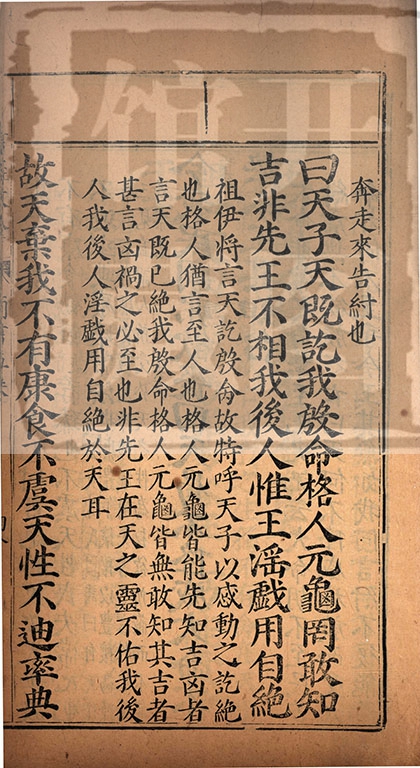 奔走來告紂也
曰天子天既訖我殷命格人元龜罔敢知
吉非先王不相我後人惟王淫戲用自絶
祖伊將言天訖殷命故特呼天子以感動之訖絶
也格人猶言至人也格人元龜皆能先知吉凶者
言天既已絶我殷命格人元龜皆無敢知其吉者
甚言凶禍之必至也非先王在天之靈不佑我後
人我後人淫戲用自絶於天耳
故天棄我不有康食不虞天性不迪率典